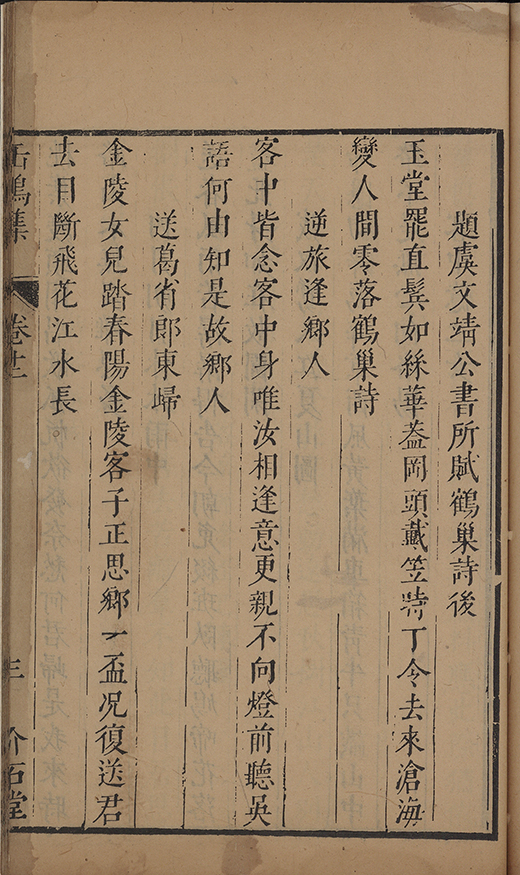 題虞文靖公書所賦鶴巢詩後
玉堂罷直鬂如絲華葢岡頭戴笠時丁令去來滄海
變人間零落鶴巢詩
逆旅逢鄉人
客中皆念客中身唯汝相逢意更親不向燈前聽吳
語何由知是故鄉人
送葛省郎東歸
金陵女兒踏春陽金陵客子正思鄉一盃况復送君
去目斷飛花江水長
缶鳴集
卷十二
三
介石堂